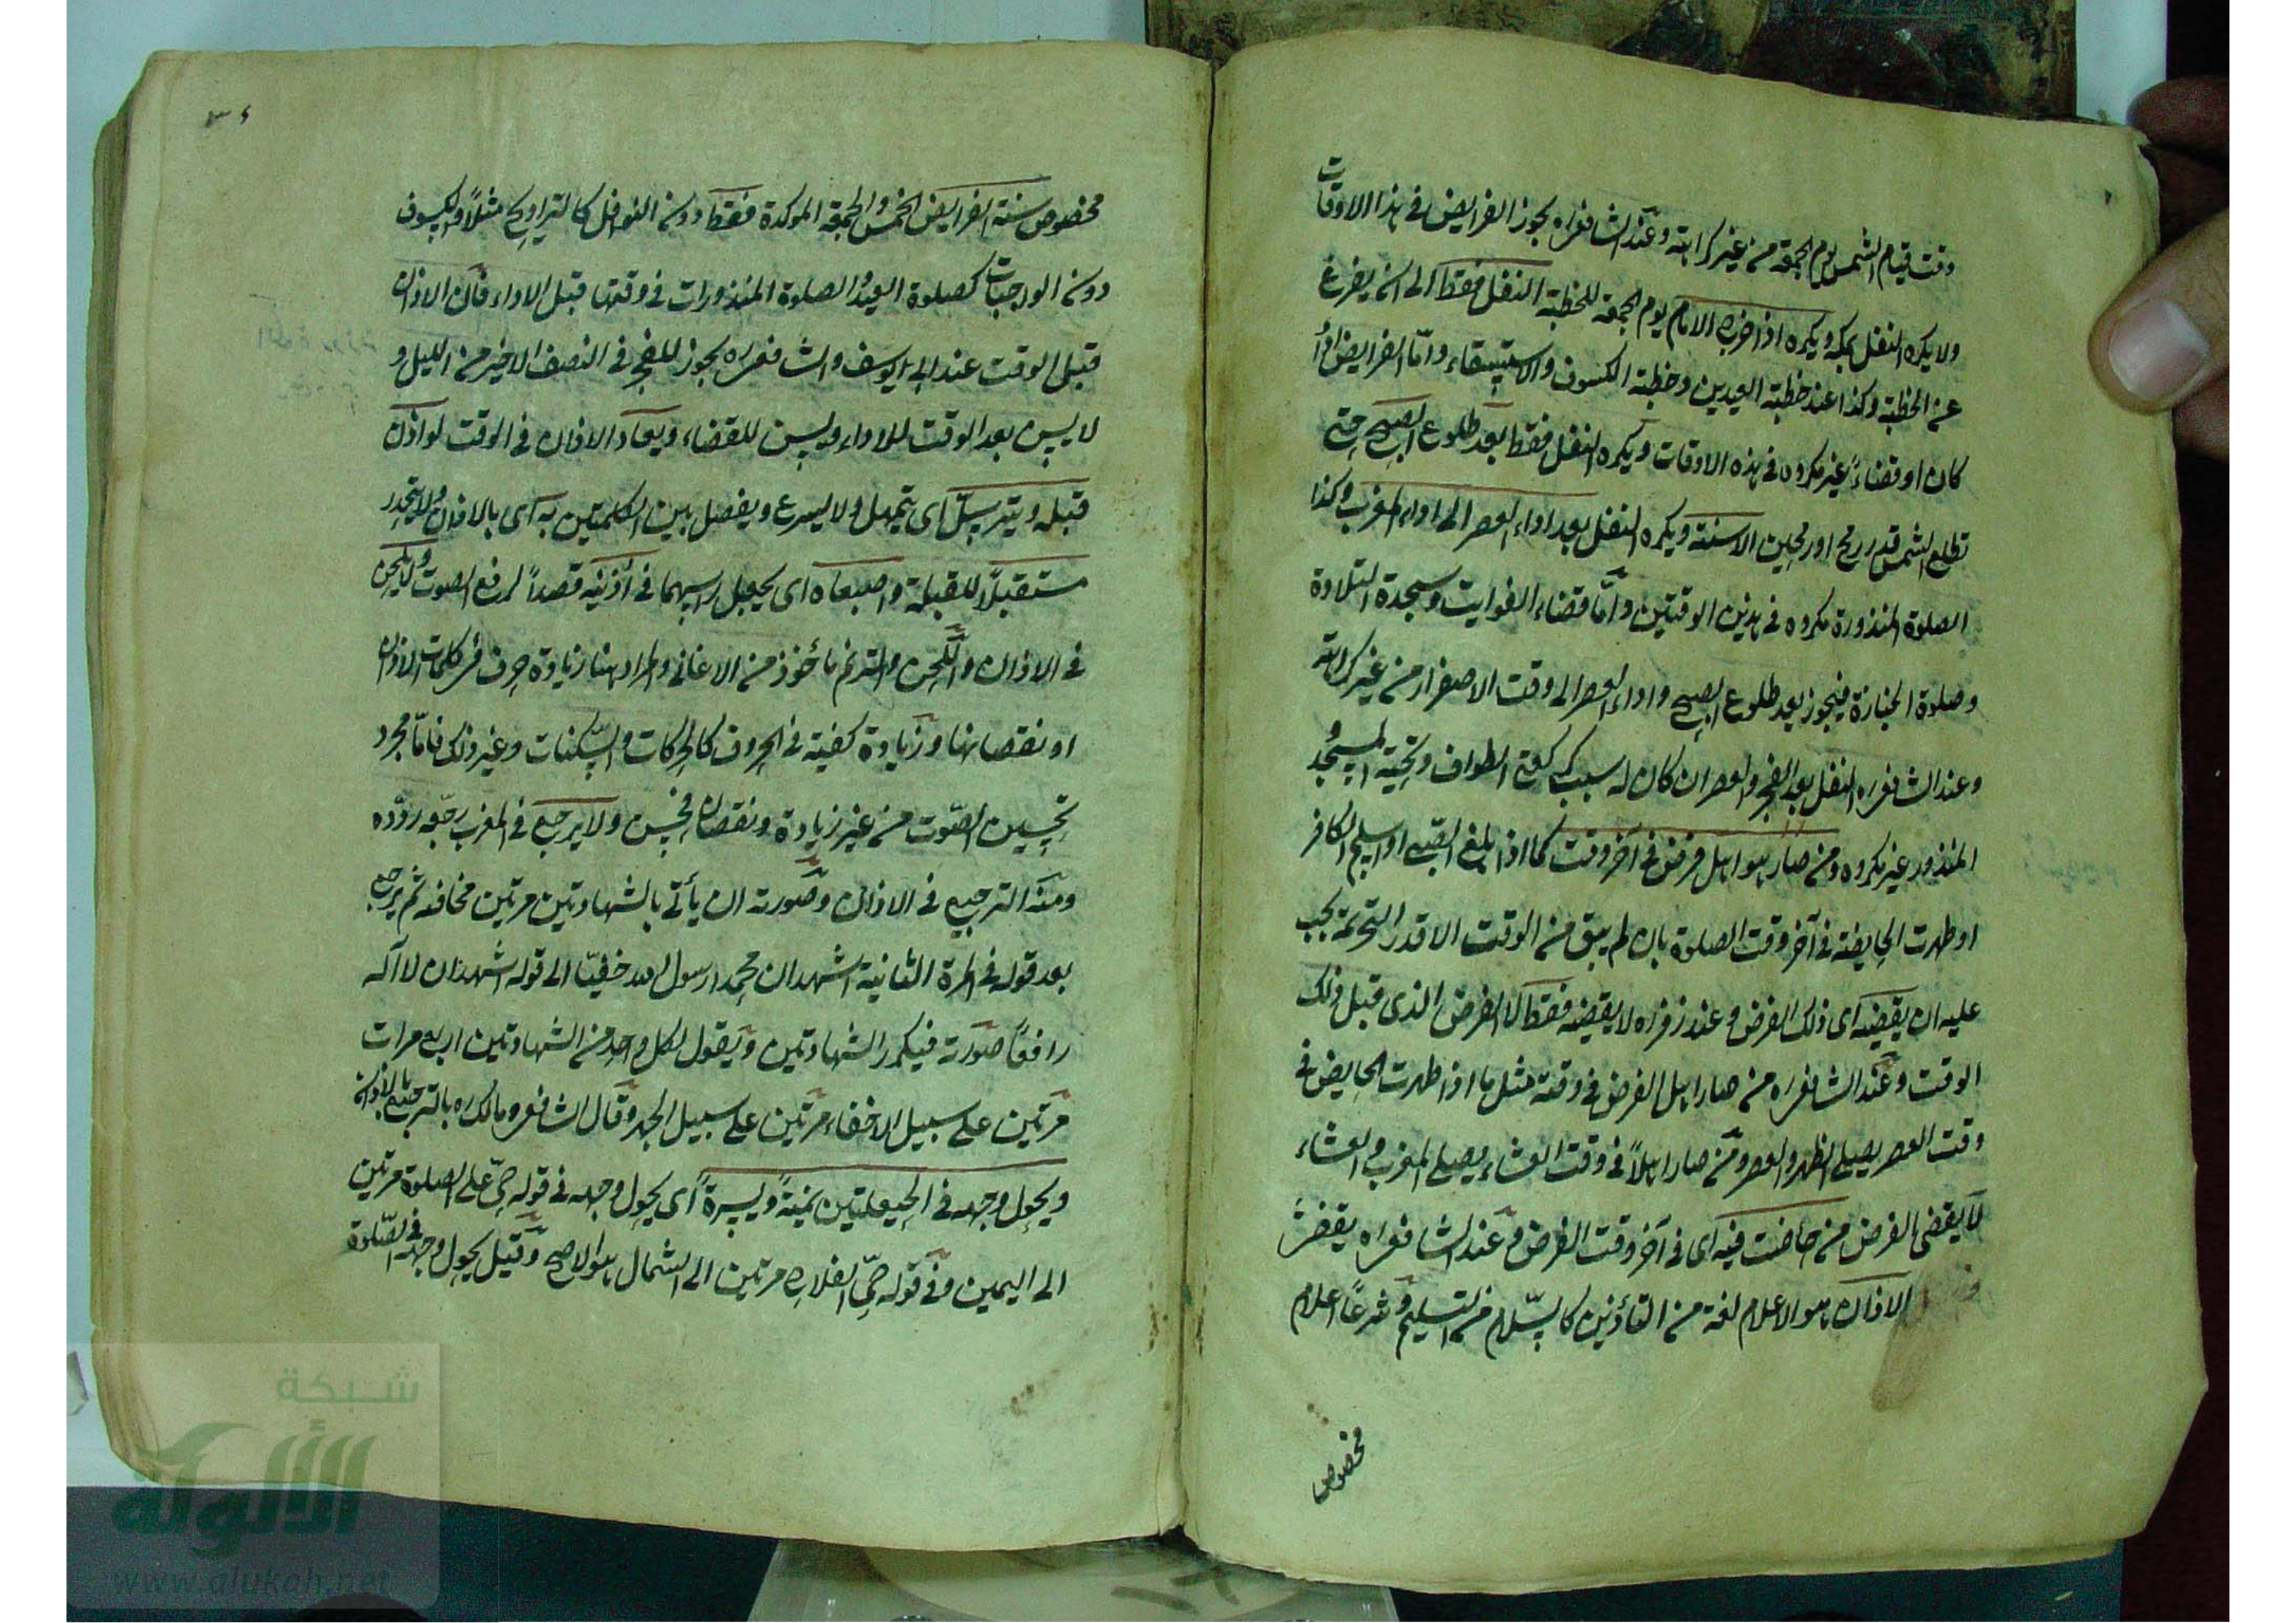 وقت قيام الشمس يوم الجمعة من غير كراهة وعند الشافعى ره يجوز الفرايض فى هذا الاوقات
ولا يكره النفل بمكة ويكره اذا خرج الامام يوم الجمعة للخطبة النفل فقط الى ان يفرغ
عن الخطبة وكذا عند خطبة العيدين وخطبة الكسوف والاستسقاء واما الفرايض اداء
كان او قضاء غير مكروه فى هذه الاوقات ويكره النفل فقط بعد طلوع الصبح حتى
تطلع الشمس قدر رمح او رمحين الا سنته ويكره النفل بعد اداء العصر الى اداء المغرب وكذا
الصلوة المنذورة مكروه فى هذين الوقتين واما قضاء الفوايت وسجدة التلاوة
وصلوة الجنازة فيجوز بعد طلوع الصبح واداء العصر الى وقت الاصفرار من غير كراهة
وعند الشافعى ره النفل بعد الفجر والعصر ان كان له سبب كركعتى الطواف وتحية المسجد و
المنذور غير مكروه ومن صار هو اهل فرض فى آخر وقت كما اذا بلغ الصبى او اسلم الكافر
او طهرت الحايضة فى آخر وقت الصلوة بان لم يبق من الوقت الا قدر التحريمة يجب
عليه ان يقضيه اى ذلك الفرض وعند زفر ره لا يقضيه فقط لا الفرض الذى قبل ذلك
الوقت وعند الشافعى ره من صار اهل الفرض فى وقته مثل ما اذا طهرت الحايض فى
وقت العصر يصلى الظهر والعصر ومن صار اهلاً فى وقت العشاء يصلى المغرب والعشاء
لا يقضى الفرض من حاضت فيه اى فى آخر وقت الفرض وعند الشافعى ره يقضى
الاذان هو الاعلام لغة من التأذين كالسلام من التسليم وشرعاً اعلام
مخصوص
٣٤
مخصوص سنة الفرايض الخمس والجمعة الموكدة فقط دون النوافل كالتراويح مثلاً والكسوف
دون الواجبات كصلوة العيد والصلوة المنذورات فى وقتها قبل الاداء فان الاذان
قبل الوقت عند ابى يوسف والشافعى ره يجوز للفجر فى النصف الاخير من الليل و
لا يسن بعد الوقت للاداء ويسن للقضاء ويعاد الاذان فى الوقت لو اذن
قبله ويترسل اى يتمهل ولا يسرع ويفصل بين الكلمتين به اى بالاذان ولا يتحدر
مستقبلاً للقبلة واصبعاه اى يجعل راسيهما فى اذنيه قصداً لرفع الصوت ولا يلحن
فى الاذان واللحن والترنم ماخوذ من الاغانى والمراد هنا زيادة حرف فى كلمات الاذان
او نقصانها وزيادة كيفية فى الحروف كالحركات والسكنات وغير ذلك فاما مجرد
تحسين الصوت من غير زيادة ونقصان فحسن ولا يرجع فى المغرب رجعه ردّه
ومنه الترجيع فى الاذان وصورته ان يأتى بالشهادتين مرتين مخافة ثم يرجع
بعد قوله فى المرة الثانية اشهد ان محمدا رسول الله خفيّا الى قوله اشهد ان لا اله
رافعاً صوته فيكرر الشهادتين ويقول لكل واحد من الشهادتين اربع مرات
مرتين على سبيل الاخفاء مرتين على سبيل الجهر وقال الشافعى ومالك ره بالترجيع بالاذان
ويحول وجهه فى الحيعلتين يمنةً ويسرةً اى يحول وجهه فى قوله حىّ على الصلوة مرتين
الى اليمين وفى قوله حىّ الفلاح مرتين الى الشمال هو الاصح وقيل يحول وجهه فى الصّلوة
شبكة
الألوكة
www.alukah.net